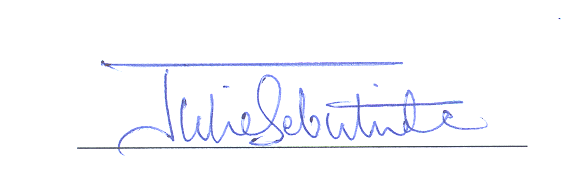 Julia Sebutinde